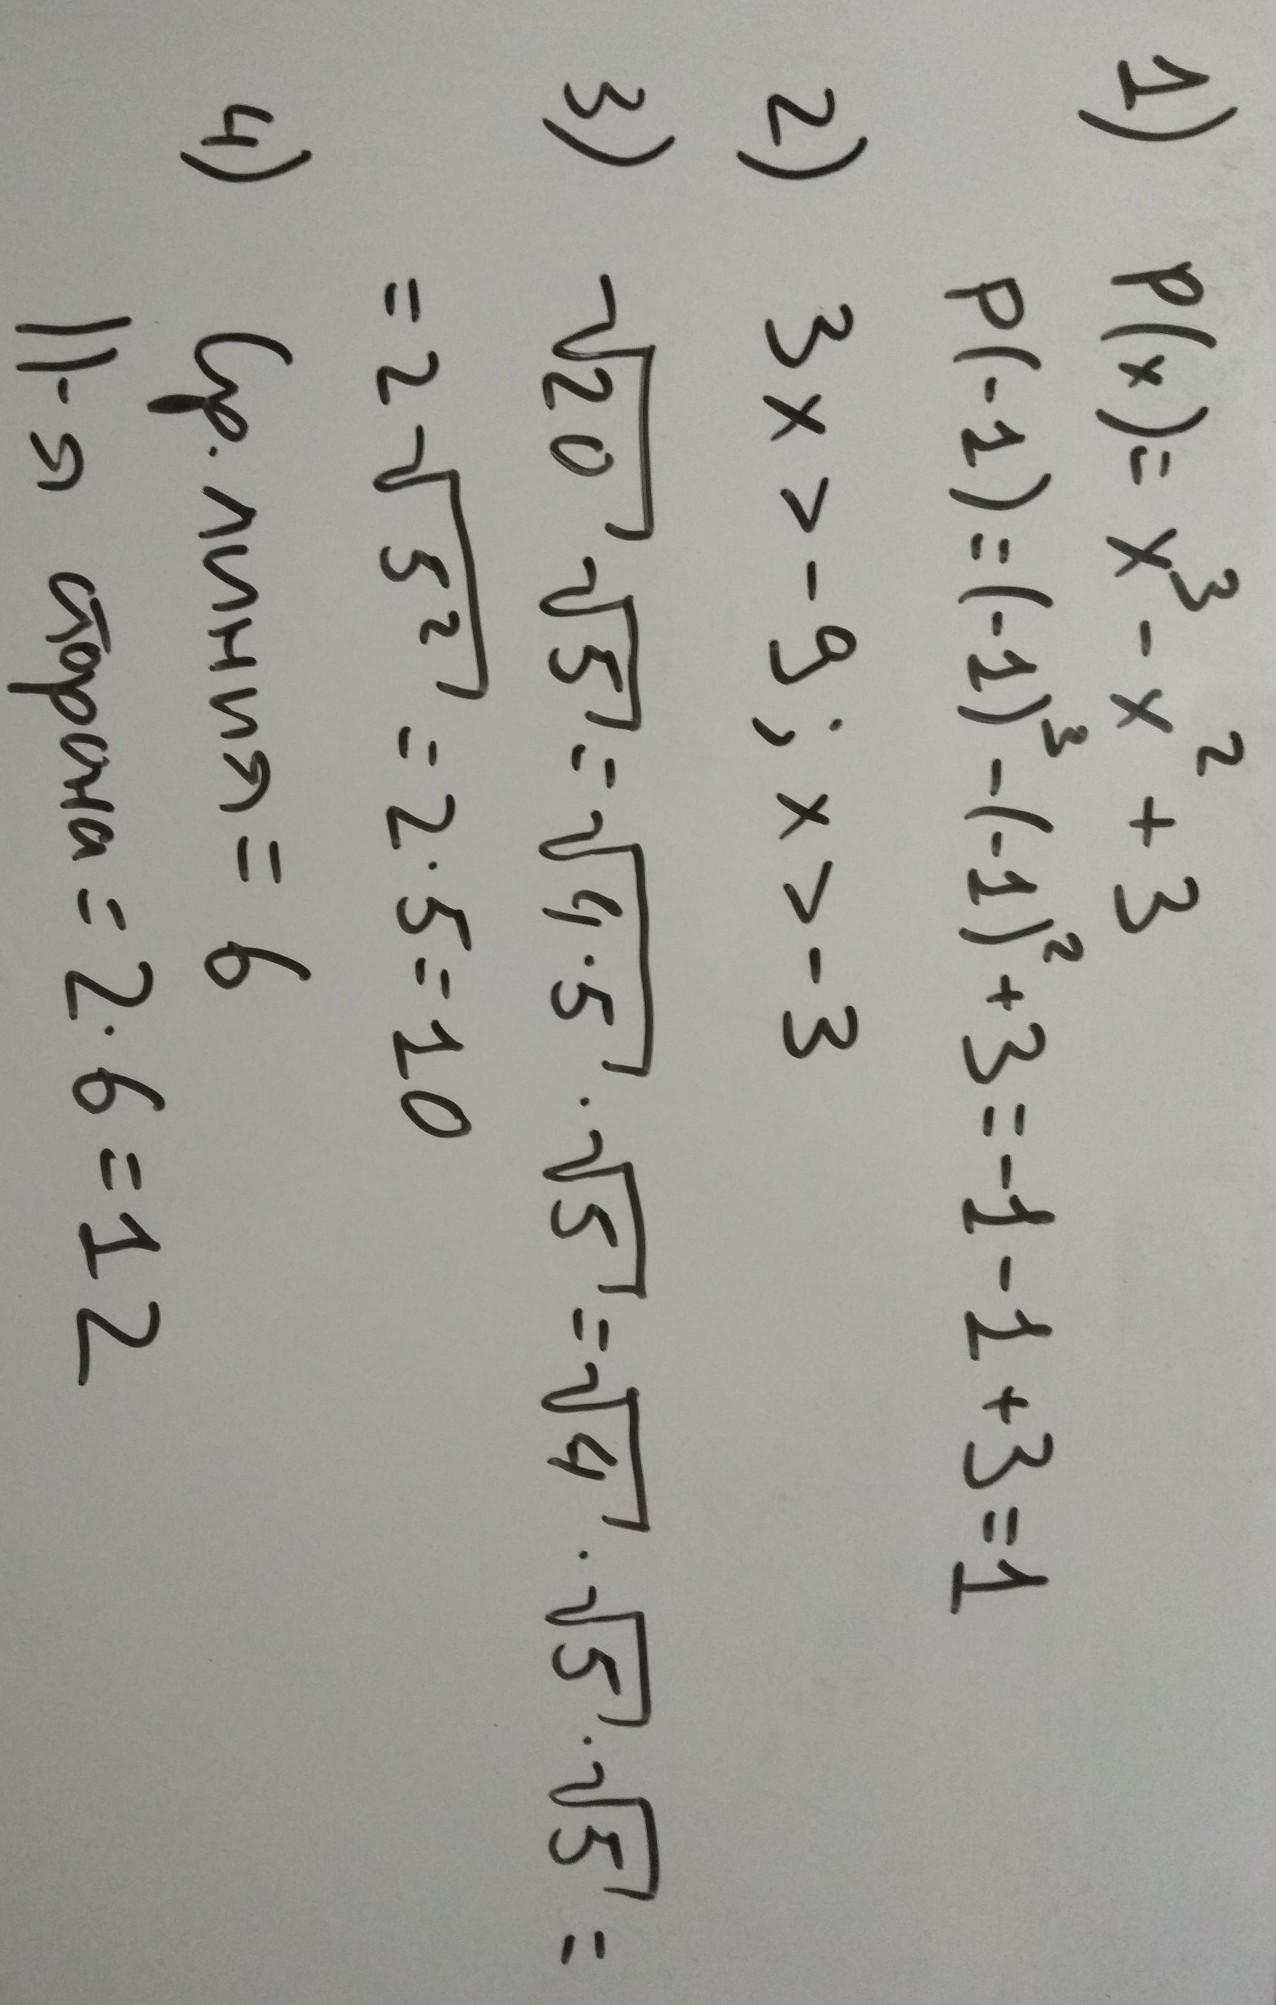 1) P(x) = x³ - x² + 3
P(-1) = (-1)³ - (-1)² + 3 = -1 - 1 + 3 = 1
2) 3x > -9; x > -3
3) √20 √5 = √4·5 · √5 = √4 · √5 · √5 =
= 2√5² = 2·5 = 10
4) Ср. линия = 6
||-я сторона = 2·6 = 12